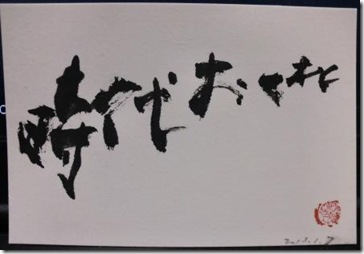 時代おくれ